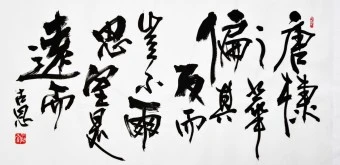 唐棣
之華
偏其
反而
豈不爾
思室是
遠而